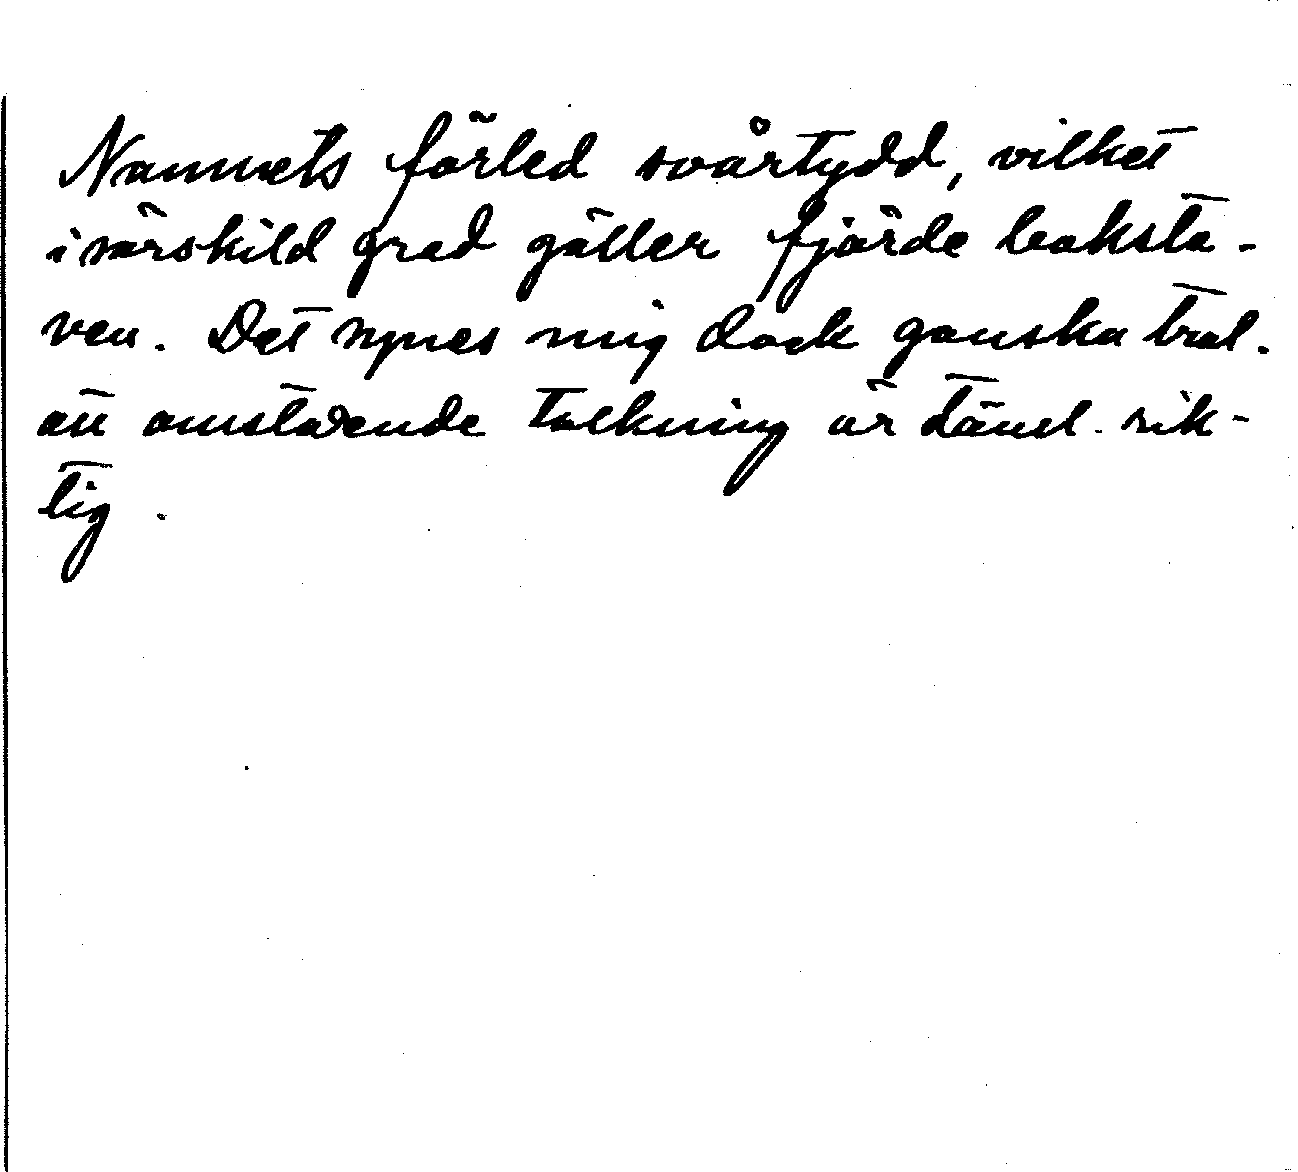 Namnets förled svårtydd, vilket
i särskild grad gäller fjärde boksta-
ven. Det synes mig dock ganska trol.
att omstående tolkning är tänd. rik-
tig.